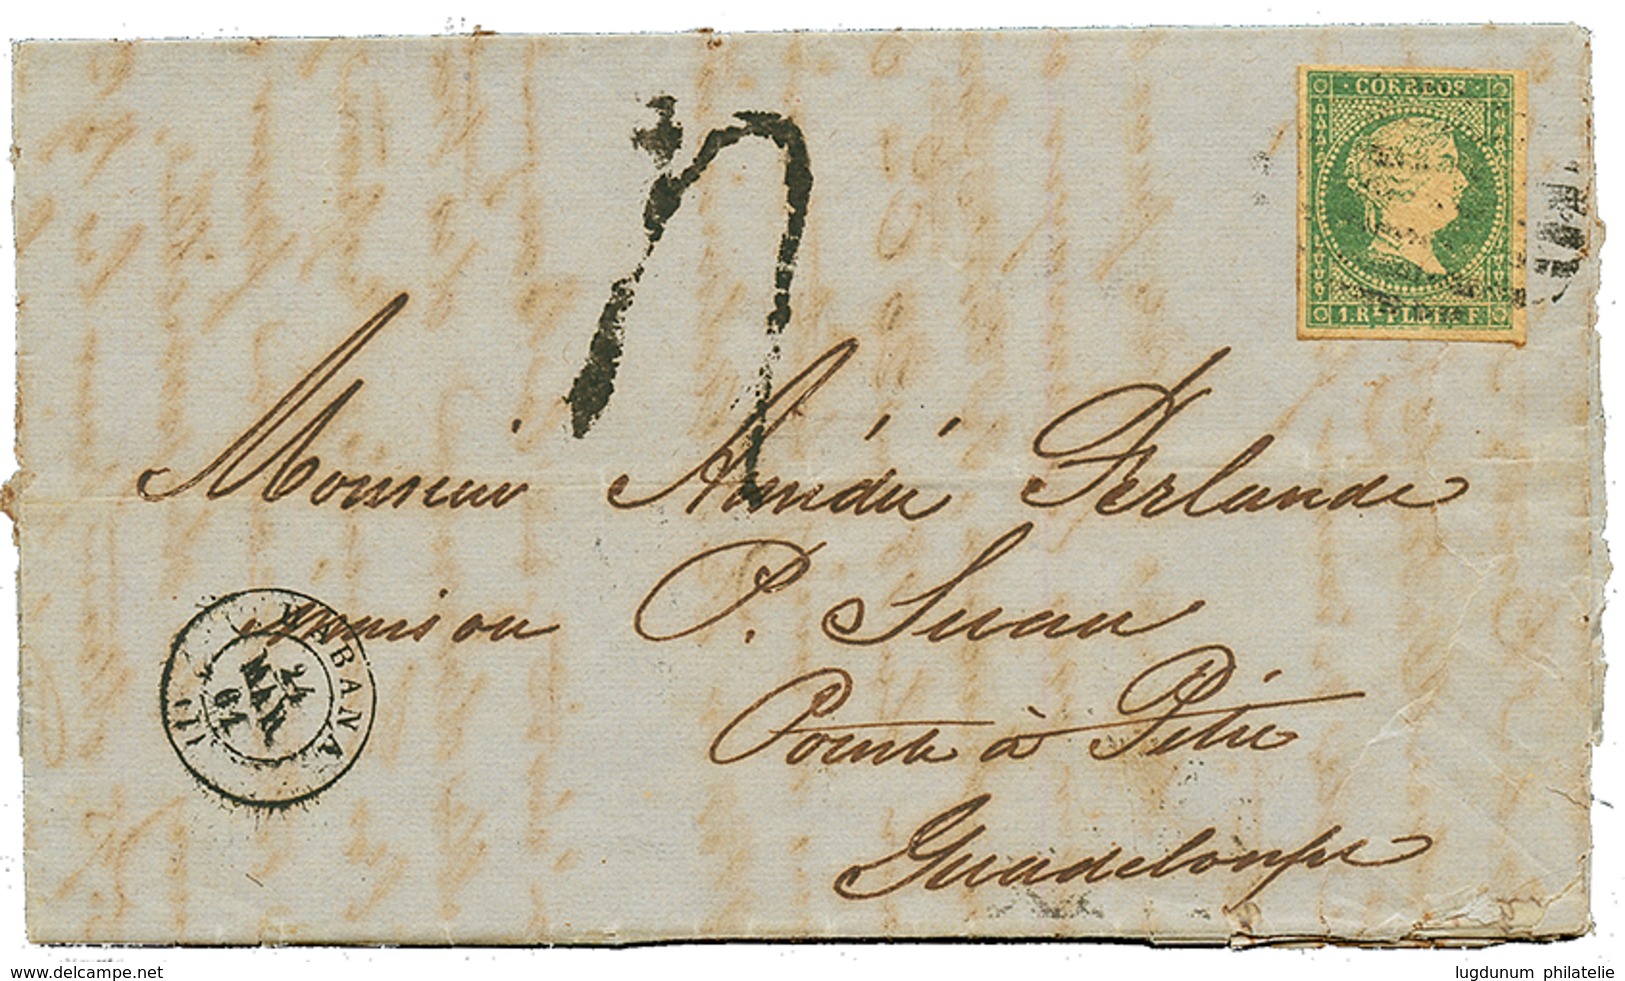 CORREOS
1. Rˡ PLATA F.
n
Monsieur Amédée Ferlande
maison P. Suau
Pointe à Pitre
Guadeloupe
HABANA
24
MAR
61
delcampe.net
lugdunum philatelie